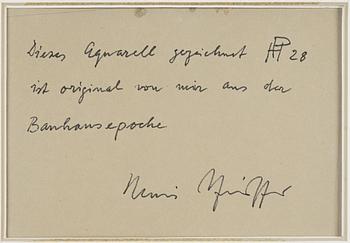 Dieses Aquarell gezeichnet HP 28
ist original von mir aus der
Bauhausepoche